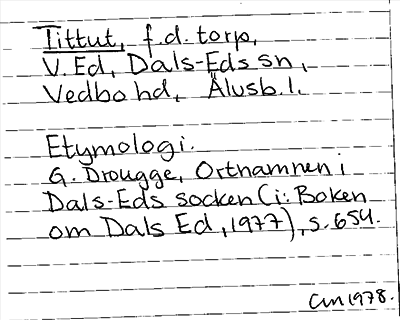 Tittut, f.d. torp,
V. Ed, Dals-Eds sn,
Vedbo hd, Älvsb. l.
Etymologi.
G. Drougge, Ortnamnen i
Dals-Eds socken (i: Boken
om Dals Ed, 1977), s. 654.
CM 1978.